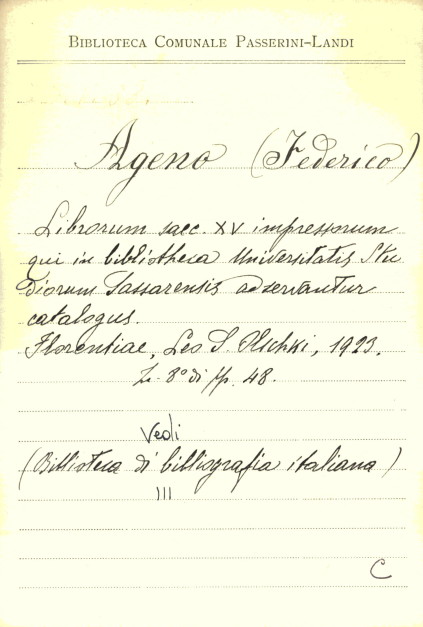 BIBLIOTECA COMUNALE PASSERINI-LANDI
Ageno (Federico)
Librorum saec. XV impressorum
qui in bibliotheca Universitatis Stu
diorum Sassarensis adservantur
catalogus.
Florentiae, Leo S. Olschki, 1923.
8° di pp. 48.
Vedi
(Biblioteca di bibliografia italiana)
III
C